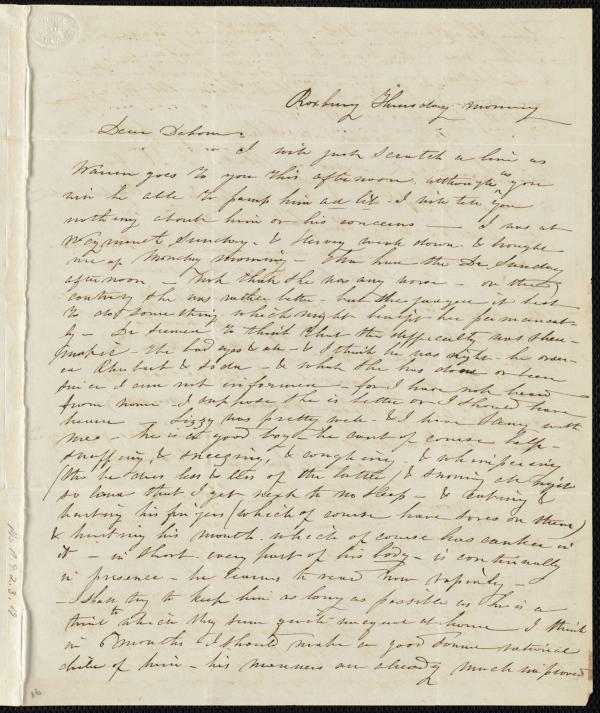 Roxbury Thursday morning
Dear Debora
I will just scratch a line as
Warren goes to you this afternoon. although as you
will be able to pump him ad lib. I will tell you
nothing about him or his concerns — I was at
Weymouth Sunday. & Hervey went down & brought
me up Monday morning — the Dr. Sunday
afternoon — not think she was any worse — on the
contrary she was rather better — but they judged it best
to do something which might benefit her permanent-
ly — Dr seemed to think that the difficulty was
— the bad eyes & all — & I think he was right — he order-
ed Rhubarb & Soda — & what she has done or been
since I am not informed — for I have not heard
from home — I suppose she is better or I should have
heard — Lizzy was pretty well — & I have with
me — he is a good boy he can't of course help
snuffing, & sneezing, & coughing — & whimpering
(tho' he does less & less of the latter) & snoring all night
so loud that I get next to no sleep — &
hurting his fingers (which of course have sores on them)
& hurting his mouth. which of course has canker in
it — in short. every part of his body — is continually
in presence — he learns to read now rapidly —
— shall try to keep him as long as possible as he is a
which they seem quite at home I think
in 6 months I should make a good
child of him — his manners are already much improved
16